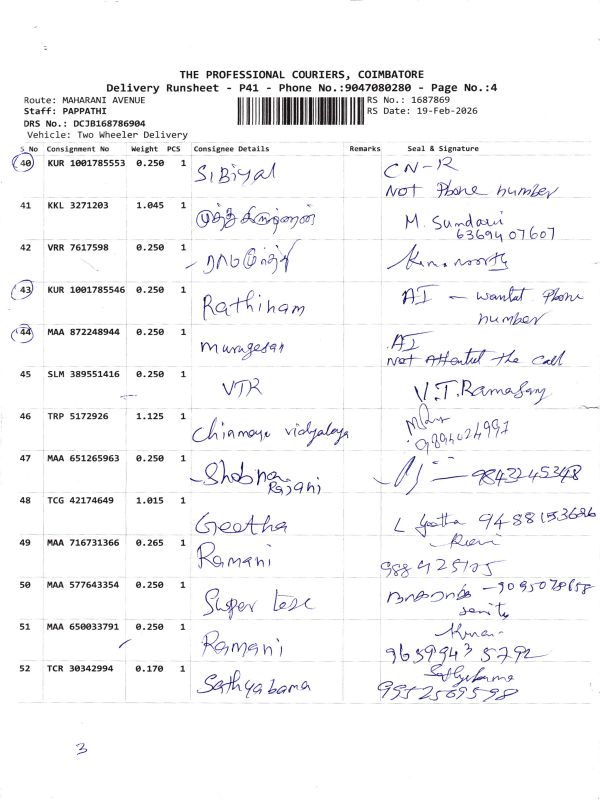 THE PROFESSIONAL COURIERS, COIMBATORE
Delivery Runsheet - P41 - Phone No.:9047080280 - Page No.:4
Route: MAHARANI AVENUE RS No.: 1687869
Staff: PAPPATHI RS Date: 19-Feb-2026
DRS No.: DCJB168786904
Vehicle: Two Wheeler Delivery
S_No Consignment No Weight PCS Consignee Details Remarks Seal & Signature
40 KUR 1001785553 0.250 1 SIBIyal CN-R
Not Phone number
41 KKL 3271203 1.045 1 M. Sundari
6369407607
42 VRR 7617598 0.250 1
43 KUR 1001785546 0.250 1 Rathinam AI - wantat Phone
number
44 MAA 872248944 0.250 1 Murugesan AI
Not Attentut the call
45 SLM 389551416 0.250 1 VTR V.T.Ramasamy
46 TRP 5172926 1.125 1 Chinmaya vidyalaya
9894024991
47 MAA 651265963 0.250 1 Shobna 9843245348
Rajani
48 TCG 42174649 1.015 1 Geetha L Geetha 9488153686
49 MAA 716731366 0.265 1 Ramani
50 MAA 577643354 0.250 1 Super tesc 9095078658
51 MAA 650033791 0.250 1 Ramani
9659943 5792
52 TCR 30342994 0.170 1 Sathyabama Sathyabama
9952569598
3